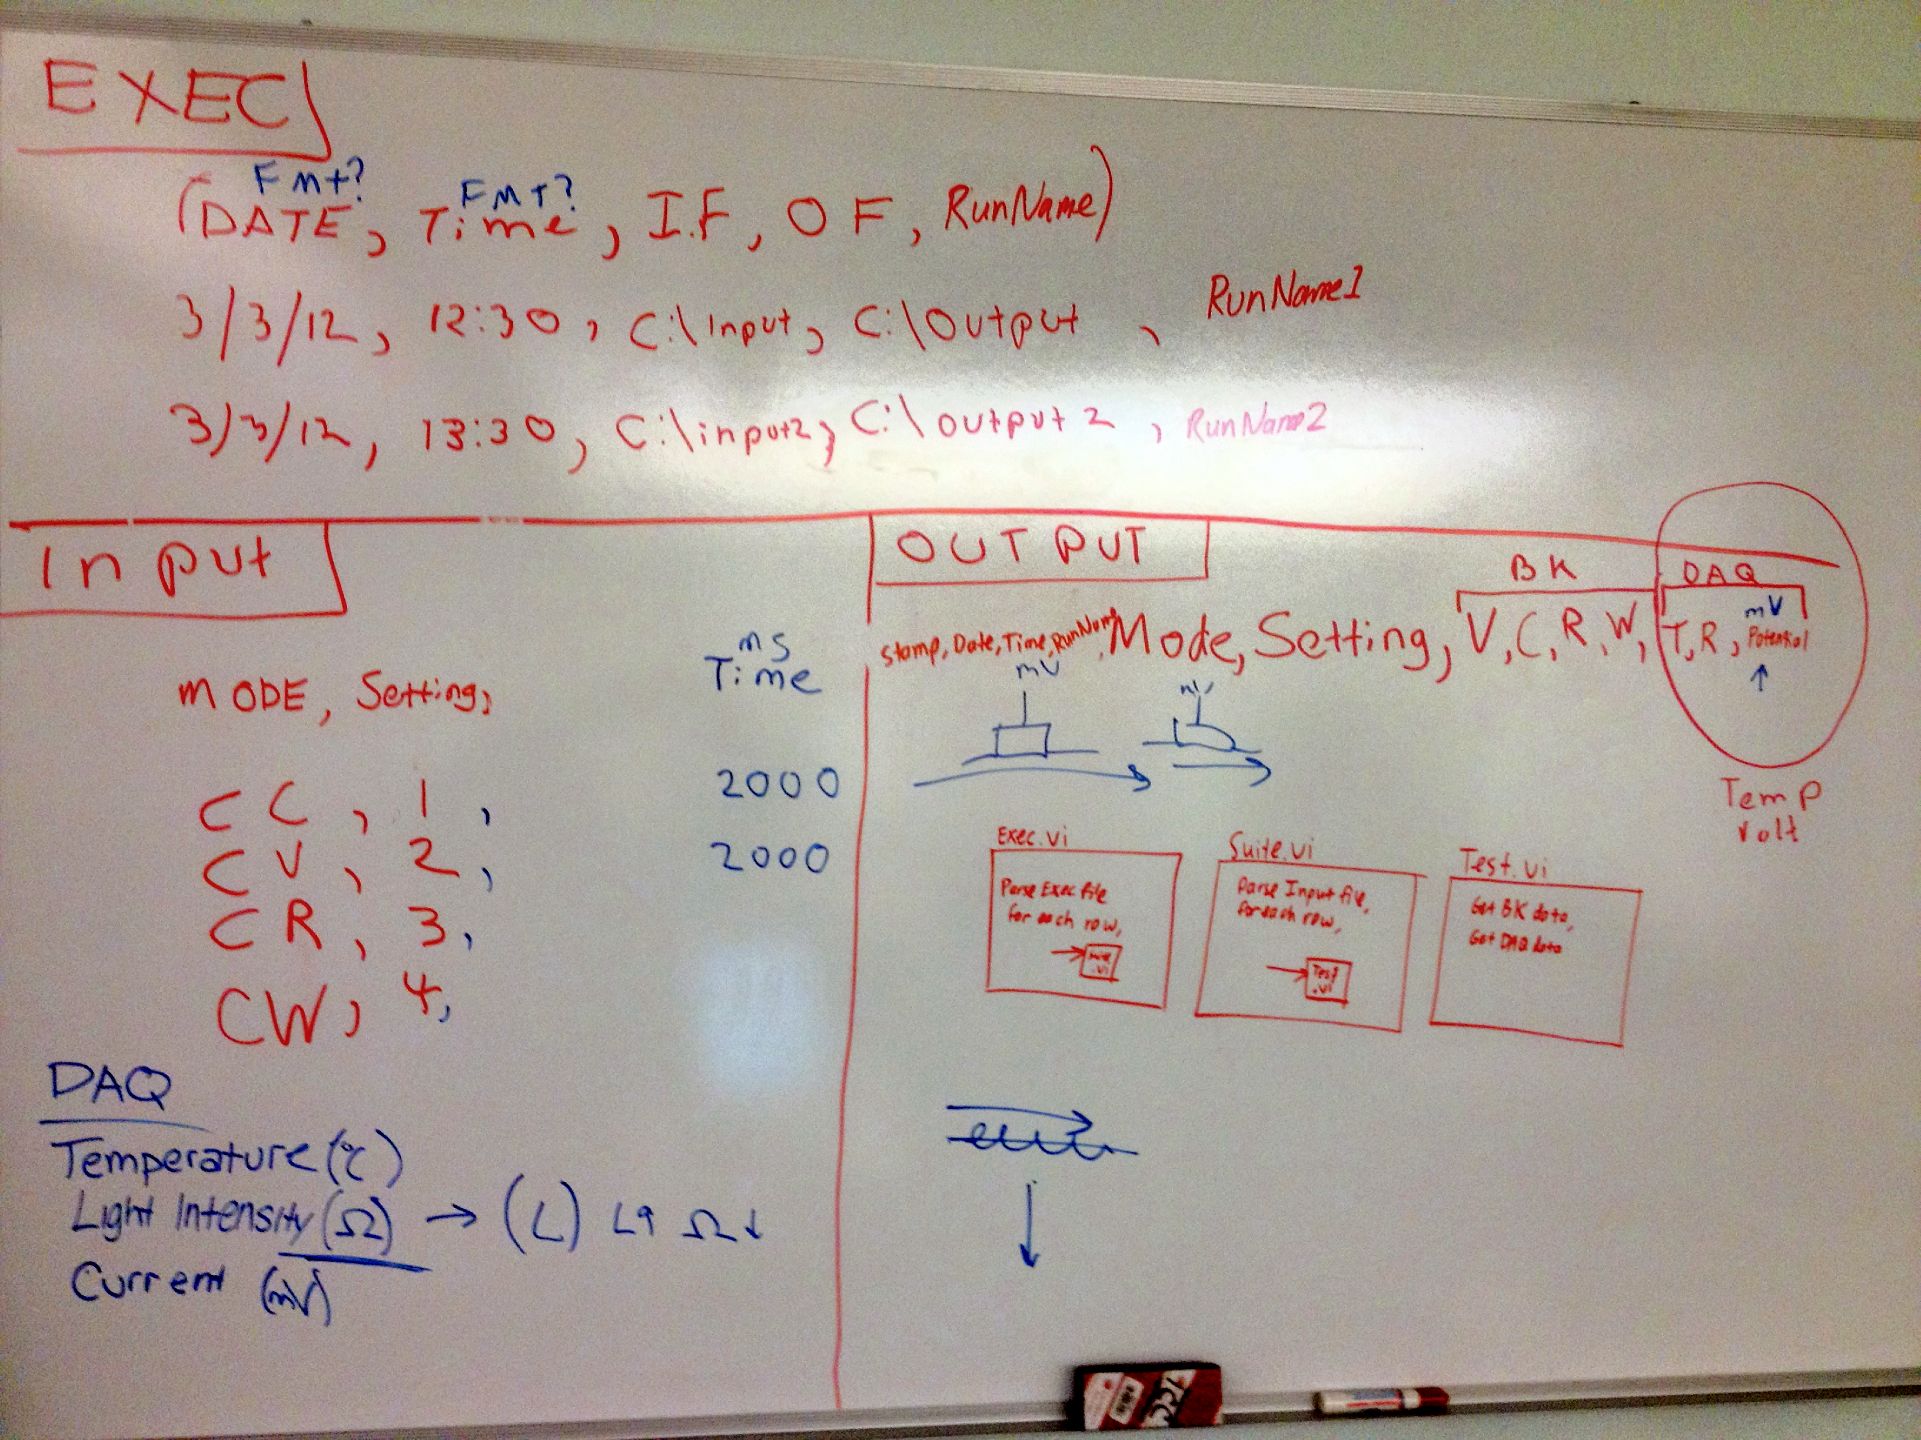 EXEC
FMT? FMT?
(DATE, Time, I.F, OF, RunName)
3/3/12, 12:30, C:\Input, C:\Output, RunName1
3/3/12, 13:30, C:\input2, C:\output2, RunName2
Input
ms
MODE, Setting, Time
CC, 1, 2000
CV, 2, 2000
CR, 3,
CW, 4,
DAQ
Temperature (°C)
Light Intensity (Ω) → (L) L↑ Ω↓
Current (mV)
OUTPUT
BK DAQ
mV
Stamp, Date, Time, RunNam, Mode, Setting, V, C, R, W, T, R, Potential
↑
mV mV
Temp
Volt
Exec.vi
Parse Exec file
for each row,
→ .vi
Suite.vi
Parse Input file,
for each row,
→ Test
.vi
Test.vi
Get BK data,
Get DAQ data